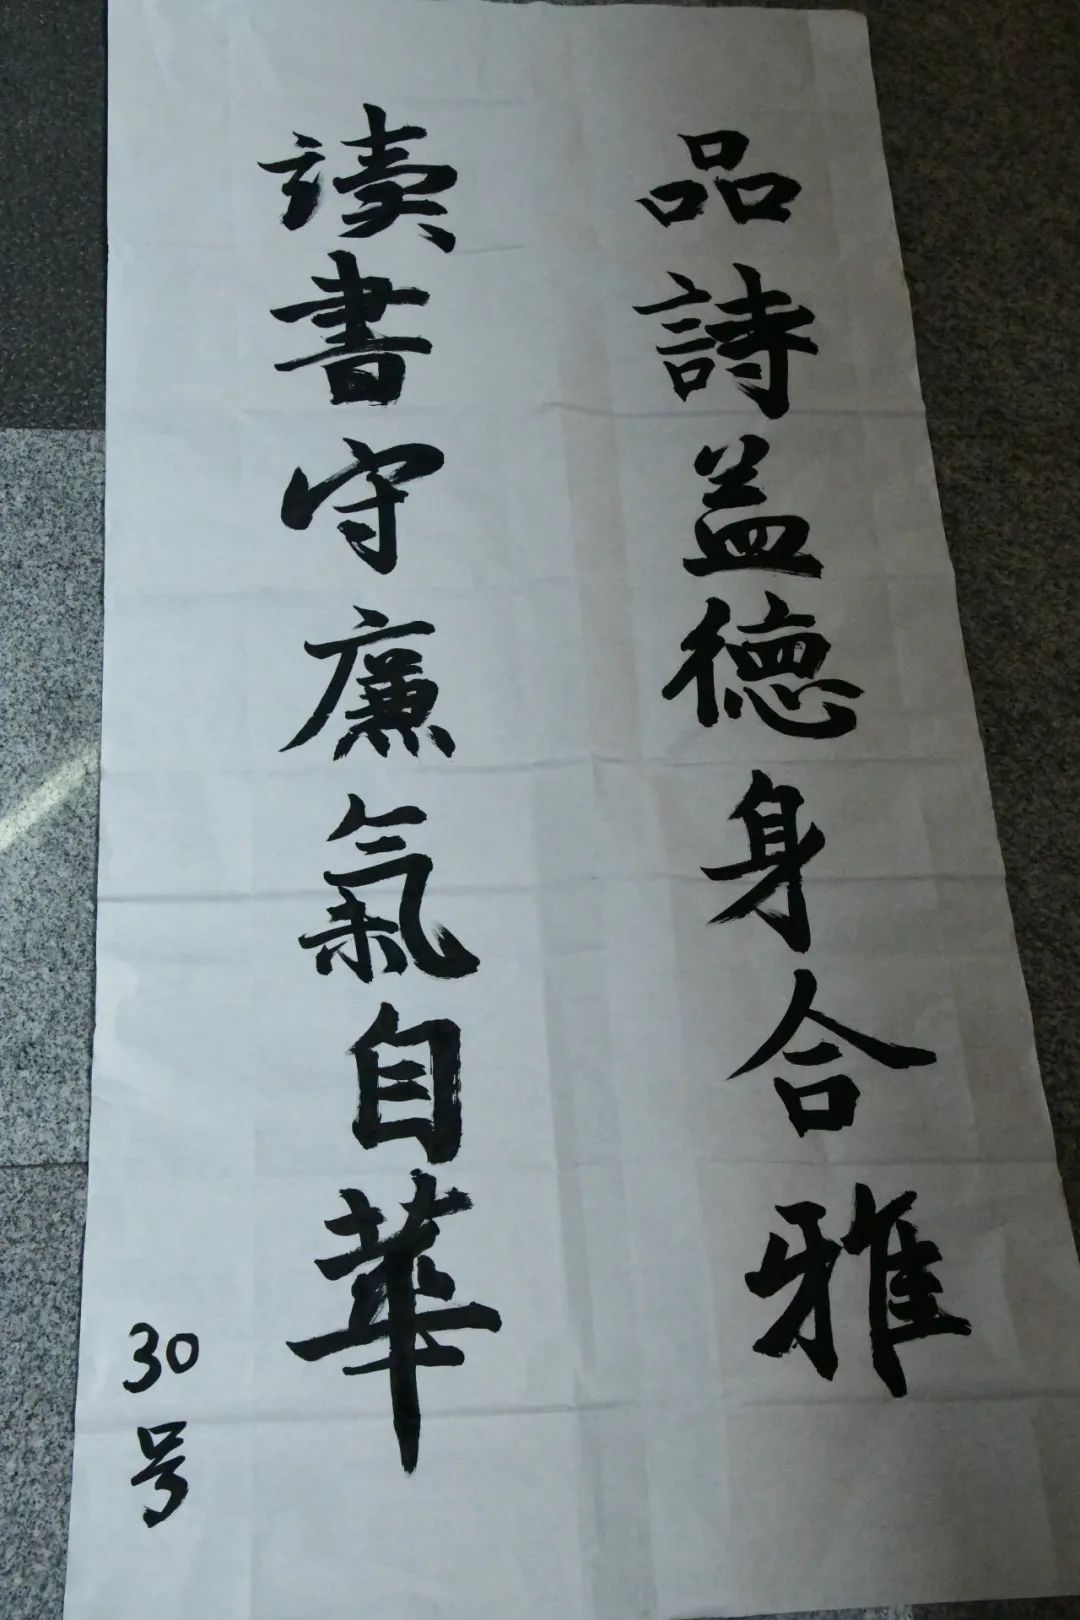 品詩益德身合雅
读書守廉氣自華
30号